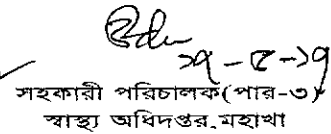 ২৭-৫-১৭
সহকারী পরিচালক(পার-৩)
স্বাস্থ্য অধিদপ্তর,মহাখা